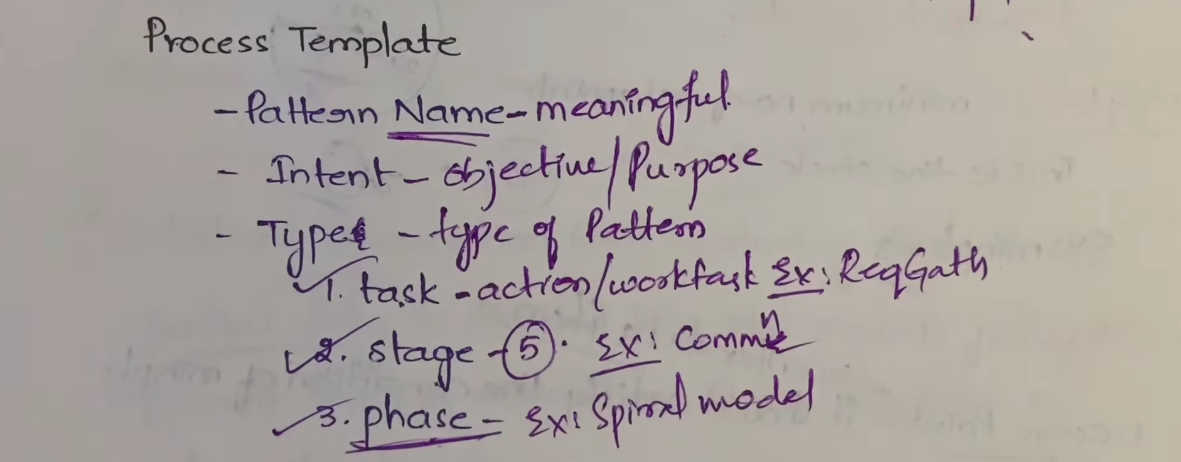 Process Template
- Pattern Name - meaningful
- Intent - objective/Purpose
- Types - type of Pattern
1. task - action/worktask Ex: ReqGath
2. stage - 5. Ex: Commn
3. phase - Ex: Spiral model